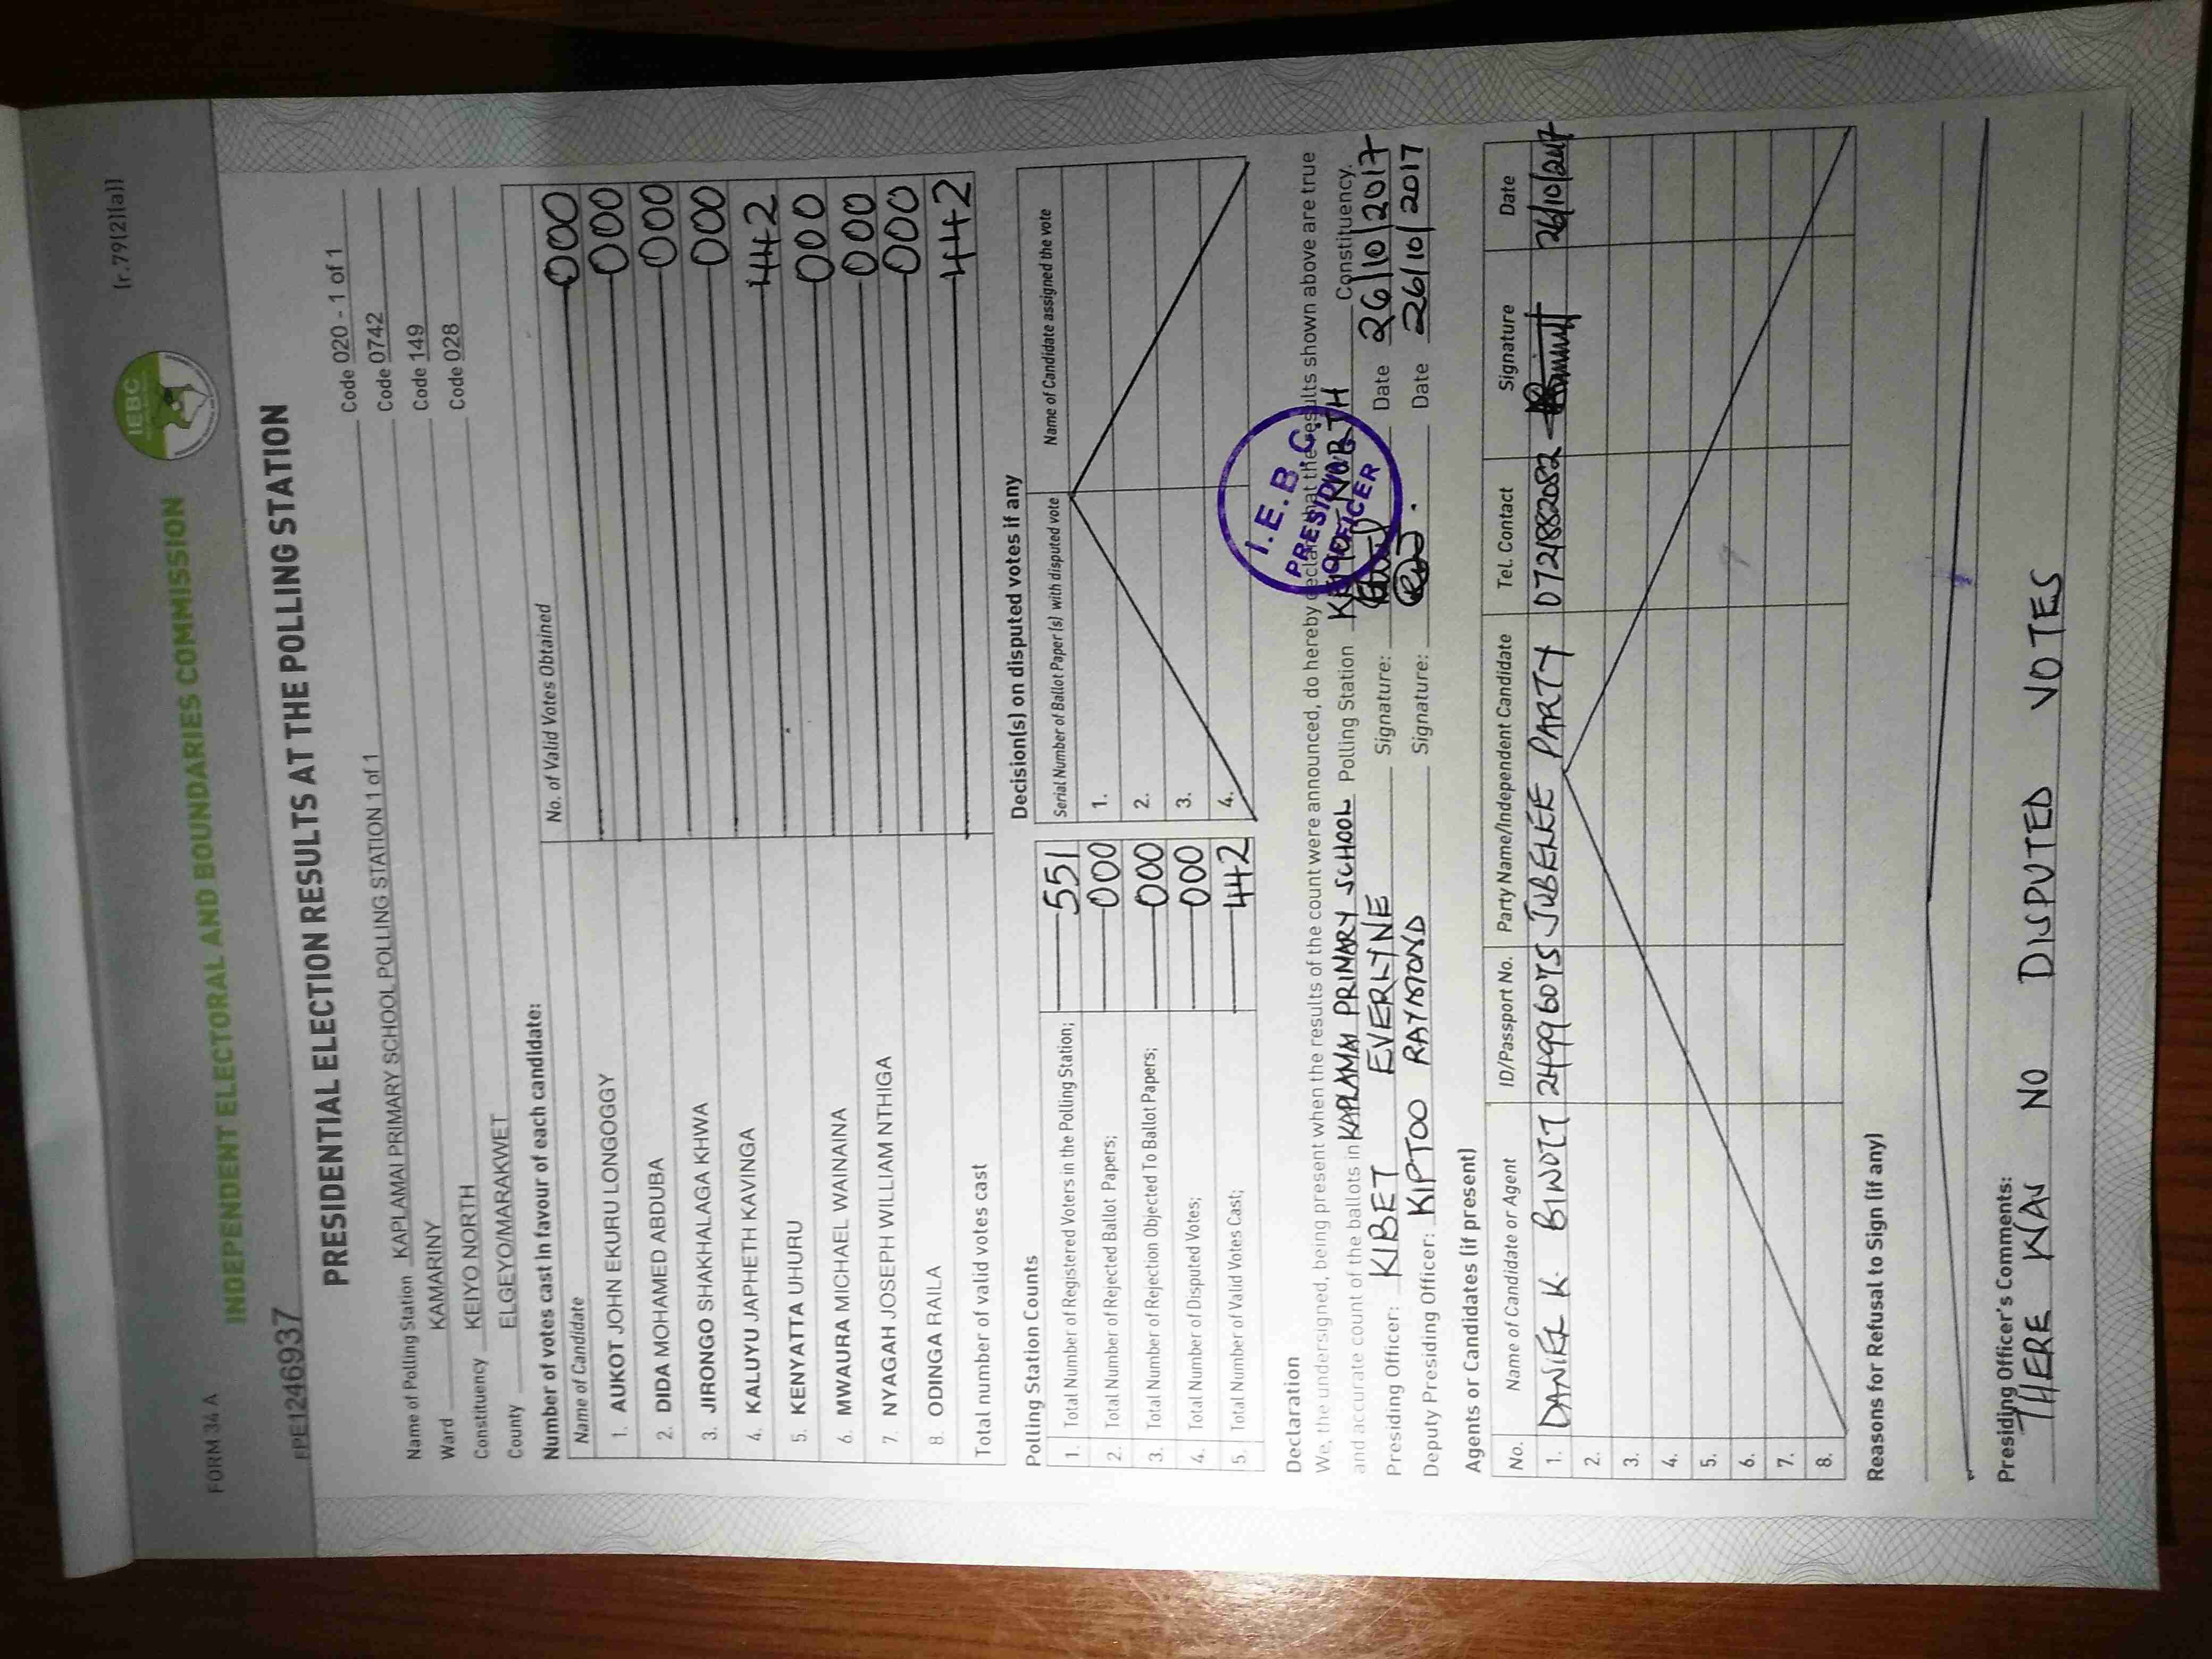 FORM 34 A
(r.79(2)(a))
INDEPENDENT ELECTORAL AND BOUNDARIES COMMISSION
IEBC
EPE1246937
PRESIDENTIAL ELECTION RESULTS AT THE POLLING STATION
Name of Polling Station KAPLAMAI PRIMARY SCHOOL POLLING STATION 1 of 1 Code 020 - 1 of 1
Ward KAMARINY Code 0742
Constituency KEIYO NORTH Code 149
County ELGEYO/MARAKWET Code 028
Number of votes cast in favour of each candidate:
Name of Candidate No. of Valid Votes Obtained
1. AUKOT JOHN EKURU LONGOGGY 000
2. DIDA MOHAMED ABDUBA 000
3. JIRONGO SHAKHALAGA KHWA 000
4. KALUYU JAPHETH KAVINGA 000
5. KENYATTA UHURU 442
6. MWAURA MICHAEL WAINAINA 000
7. NYAGAH JOSEPH WILLIAM NTHIGA 000
8. ODINGA RAILA 000
Total number of valid votes cast 442
Polling Station Counts
1. Total Number of Registered Voters in the Polling Station; 551
2. Total Number of Rejected Ballot Papers; 000
3. Total Number of Rejection Objected To Ballot Papers; 000
4. Total Number of Disputed Votes; 000
5. Total Number of Valid Votes Cast; 442
Decision(s) on disputed votes if any
Serial Number of Ballot Paper (s) with disputed vote Name of Candidate assigned the vote
1.
2.
3.
4.
Declaration
We, the undersigned, being present when the results of the count were announced, do hereby declare that the results shown above are true
and accurate count of the ballots in KAPLAMAI PRIMARY SCHOOL Polling Station KEIYO NORTH Constituency.
Presiding Officer: KIBET EVERLYNE Signature: Date 26/10/2017
Deputy Presiding Officer: KIPTOO RAYMOND Signature: Date 26/10/2017
I.E.B.C
PRESIDING
OFFICER
Agents or Candidates (if present)
No. Name of Candidate or Agent ID/Passport No. Party Name/Independent Candidate Tel. Contact Signature Date
1. DANIEL K. BINOTT JUBELEE PARTY 0721882082 26/10/2017
2.
3.
4.
5.
6.
7.
8.
Reasons for Refusal to Sign (if any)
Presiding Officer's Comments:
THERE WAS NO DISPUTED VOTES